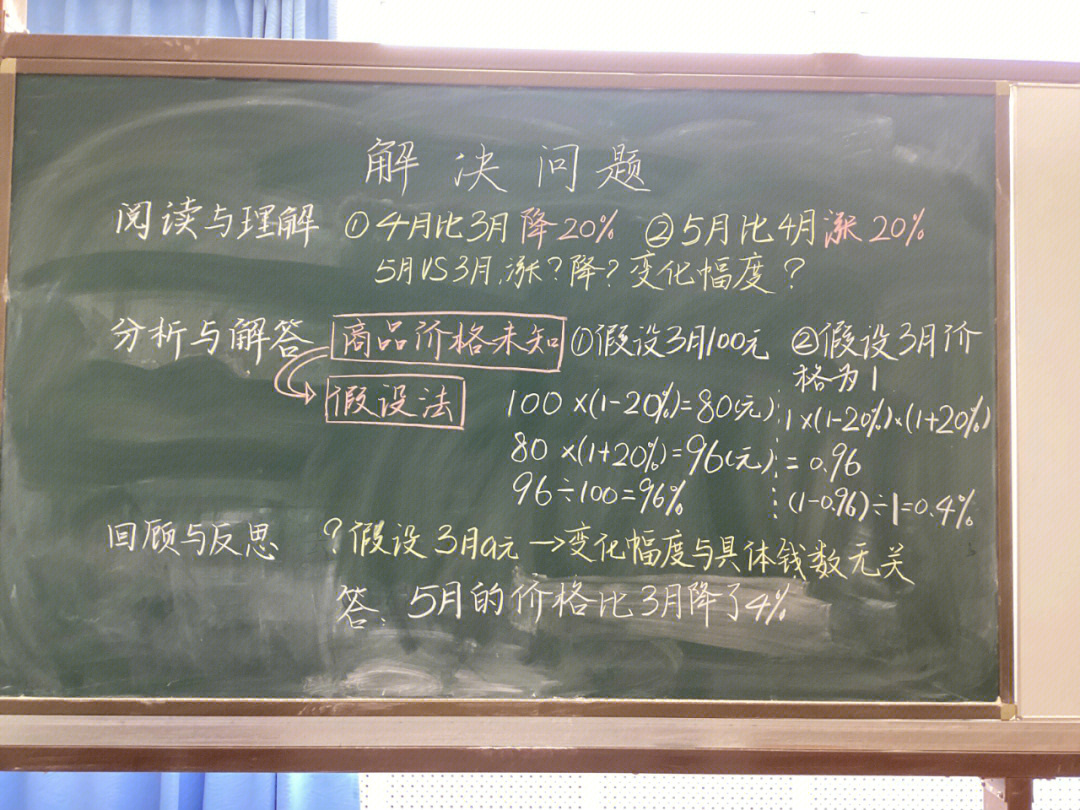 解决问题
阅读与理解 ①4月比3月降20% ②5月比4月涨20%
5月VS3月,涨?降?变化幅度?
分析与解答 商品价格未知 ①假设3月100元 ②假设3月价
格为1
假设法 100×(1-20%)=80(元) 1×(1-20%)×(1+20%)
80×(1+20%)=96(元) =0.96
96÷100=96% (1-0.96)÷1=0.4%
回顾与反思 ?假设3月a元→变化幅度与具体钱数无关
答:5月的价格比3月降了4%